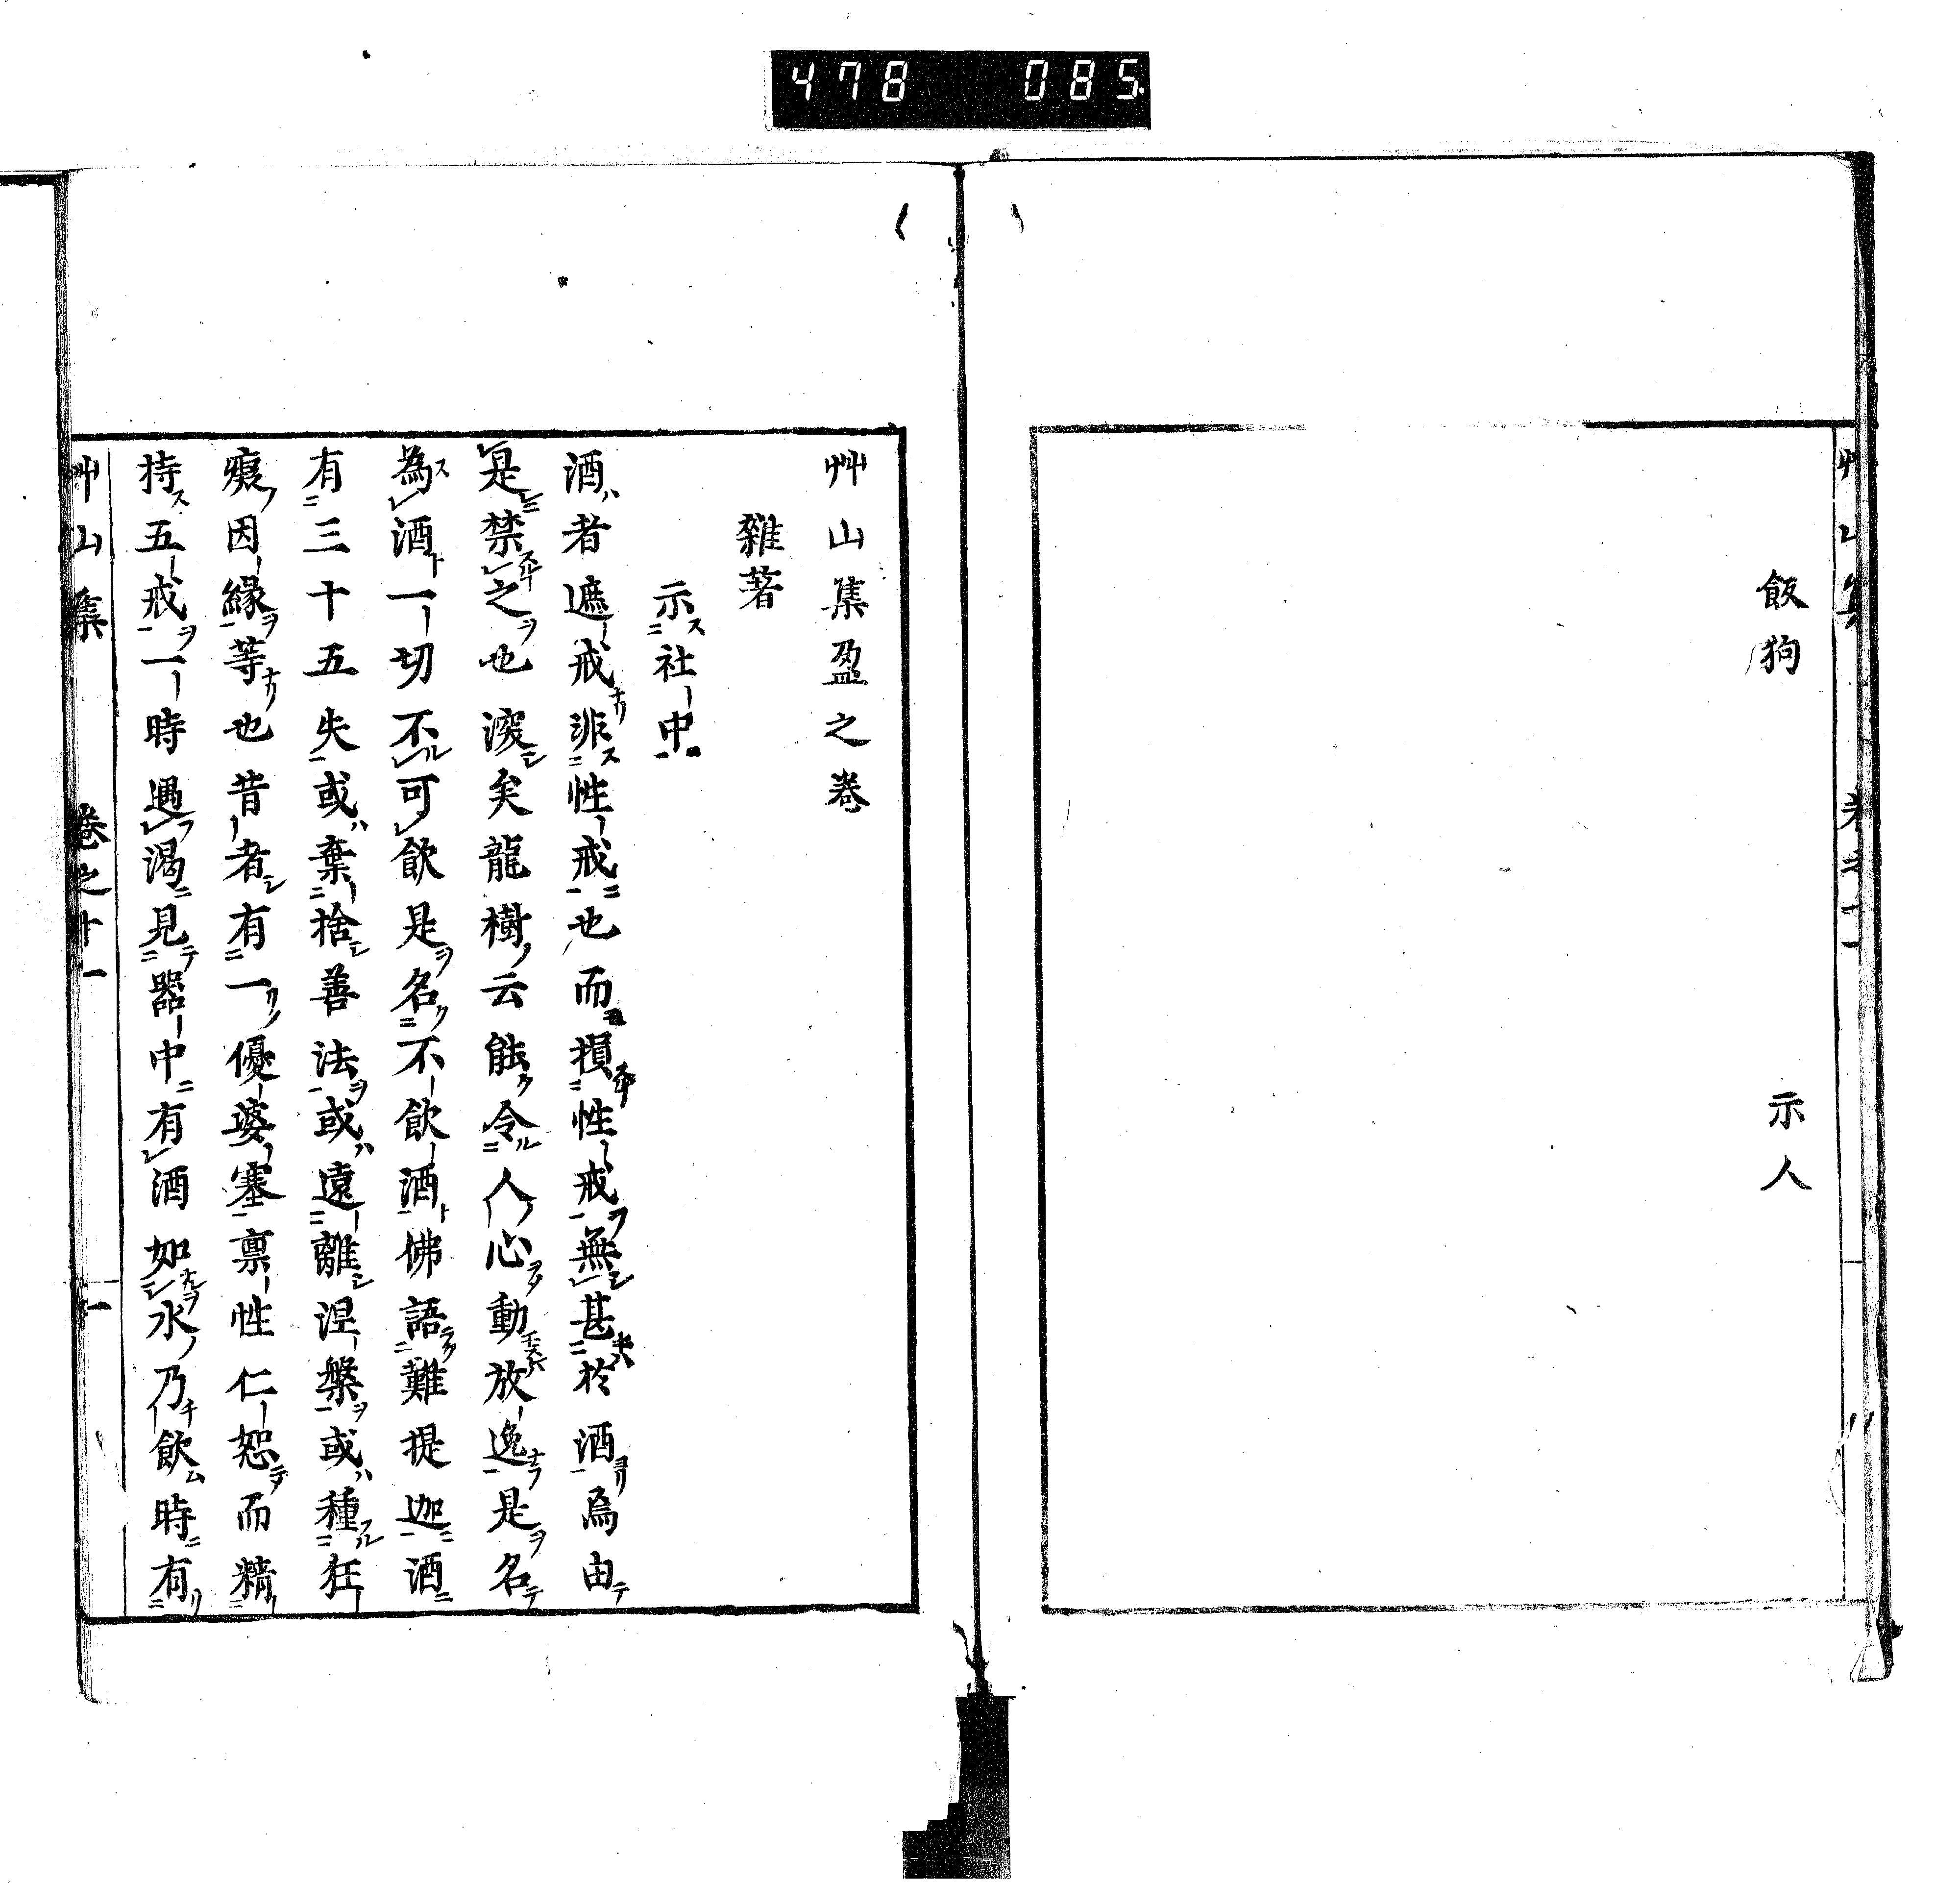 478 085
飯狗 示人
艸山集盈之巻
雜著
示社中
酒者遮戒非性戒也而損性戒無甚於酒焉由
是禁之也深矣龍樹云能令人心動放逸是名
為酒一切不可飲是名不飲酒佛語難提迦酒
有三十五失或棄捨善法或遠離涅槃或種狂
癡因緣等也昔者有一優婆塞禀性仁恕而精
持五戒一時遇渴見器中有酒如水乃飲時有
艸山集 卷之十一 一